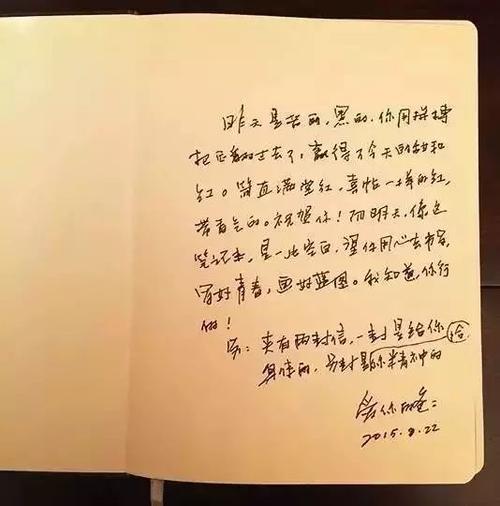 昨天是苦的，黑的，你用拼搏
把它变过去了，赢得了今天的甜和
红。简直满堂红，真怕一样的红，
带着气的。祝贺你！而明天，像这
笔记本，是一片空白，望你用心去书写，
写好青春，画好蓝图。我知道，你行
的！
另：夹有两封信，一封是给你
身体的，另封是你精神的
爱你的爸爸
2015.8.22